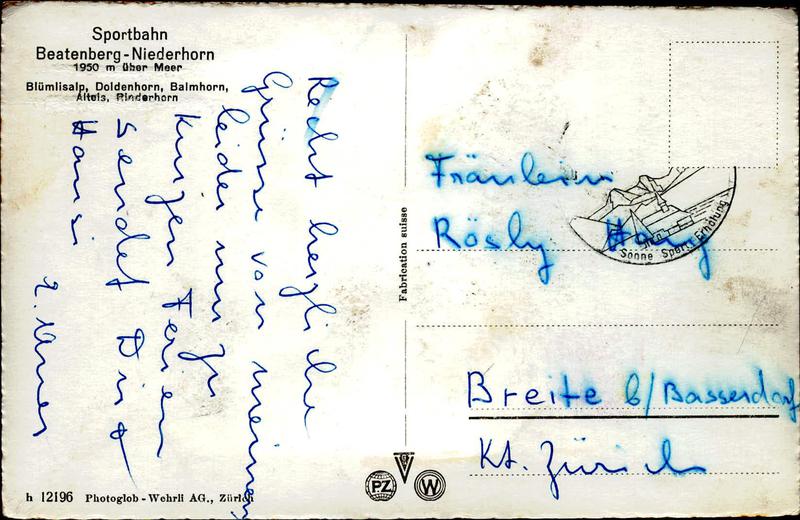 Sportbahn
Beatenberg-Niederhorn
1950 m über Meer
Blümlisalp, Doldenhorn, Balmhorn,
Altels, Rinderhorn
Recht herzliche
Grüsse von meinen
leider nur zu
kurzen Ferien
sendet Dir
Hansi
Fabrication suisse
Fräulein
Rösly
Breite b/Bassersdorf
Kt. Zürich
Sonne Sport Erholung
PZ
W
h 12196 Photoglob-Wehrli AG., Zürich